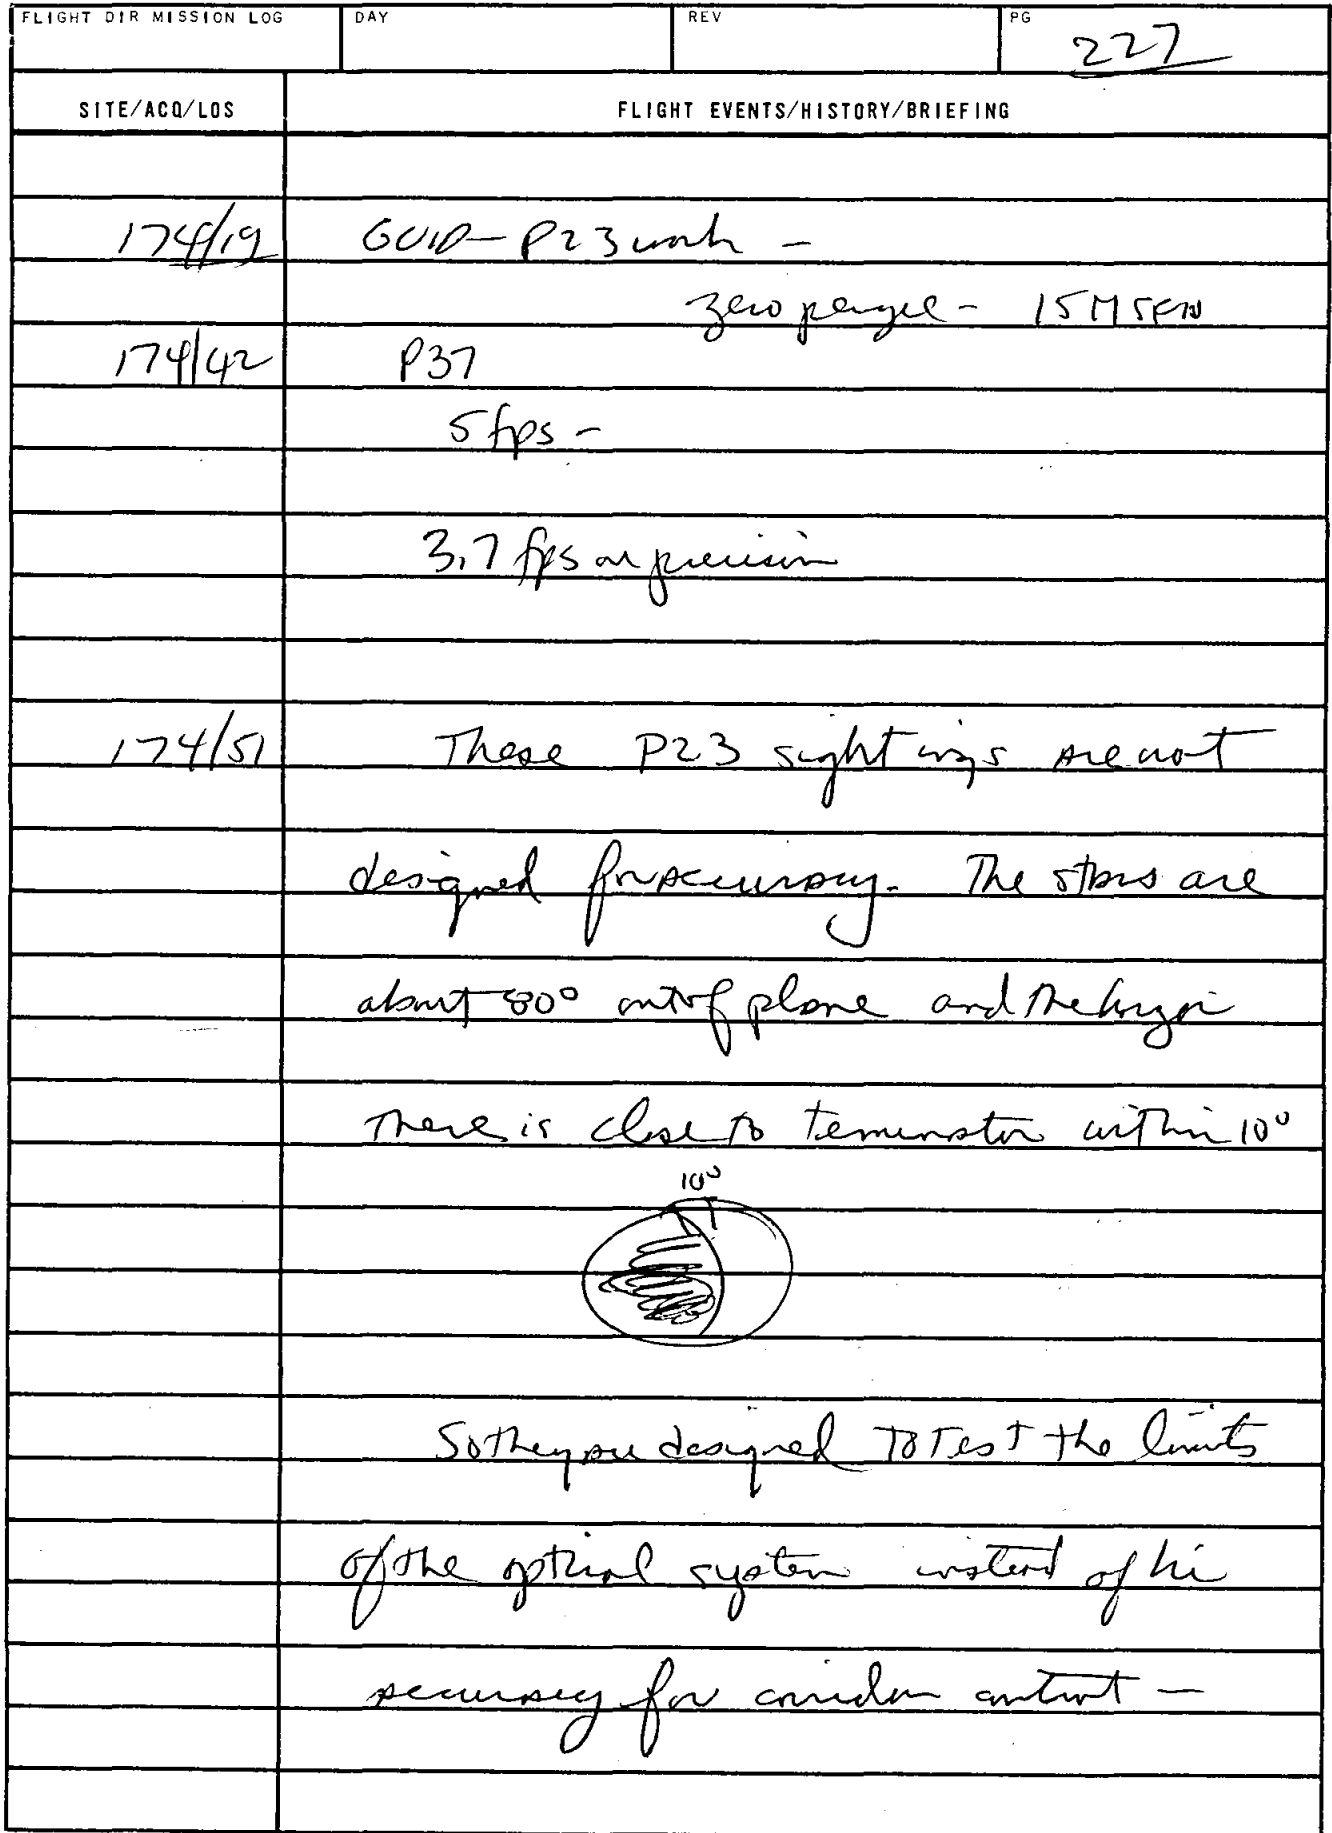 FLIGHT DIR MISSION LOG DAY REV PG 227
SITE/ACQ/LOS FLIGHT EVENTS/HISTORY/BRIEFING
174/19 GUID - P23 work -
zero - 15M
174/42 P37
5 fps -
3.7 fps on precision
174/51 These P23 sightings are not
designed for accuracy. The stars are
about 80° out of plane and the horizon
there is close to terminator within 10°
10°
So they are designed to test the limits
of the optical system instead of hi
accuracy for corridor control -